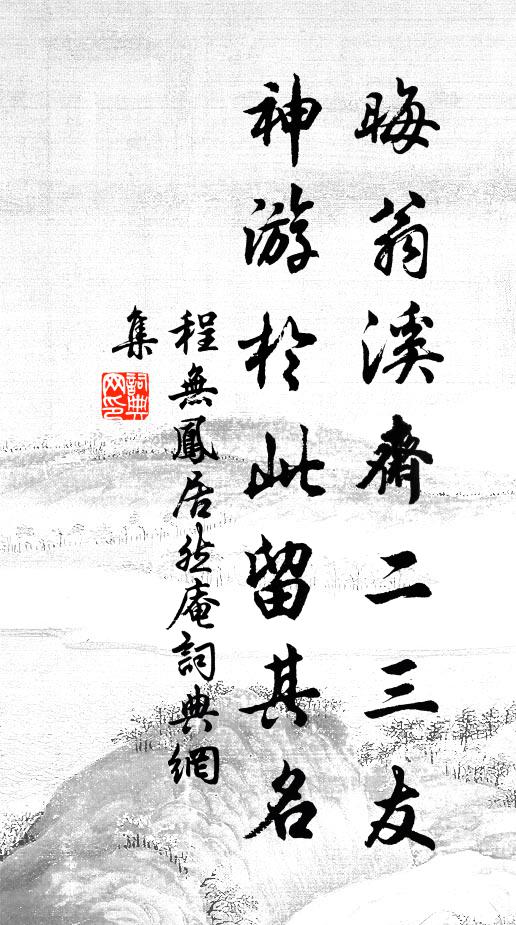 晦翁溪齋二三友
神游於此留其名
程無鳳居然庵詞典網
集
詞典
网印